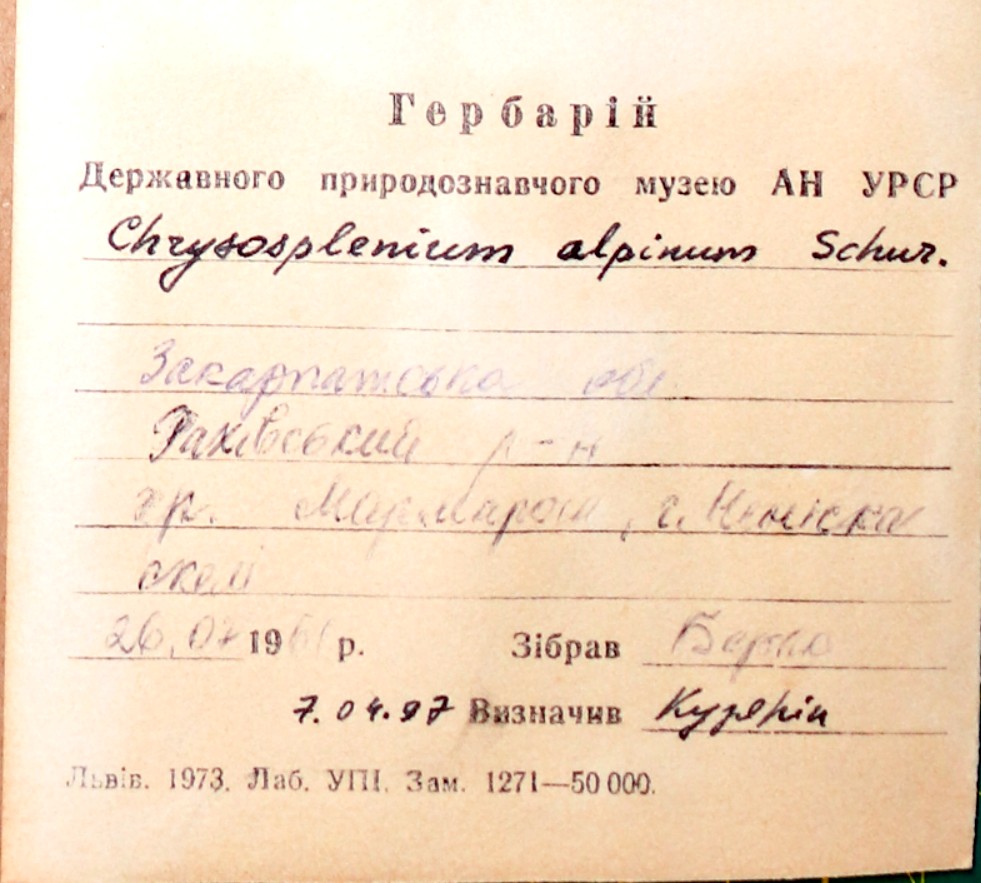 Гербарій
Державного природознавчого музею АН УРСР
Chrysosplenium alpinum Schur.
Закарпатська обл.
Рахівський р-н
хр. Мармарош, г.
скелі
26.07 19 р. Зібрав
7.04.97 Визначив Кузярін
Львів. 1973. Лаб. УПІ. Зам. 1271—50 000.